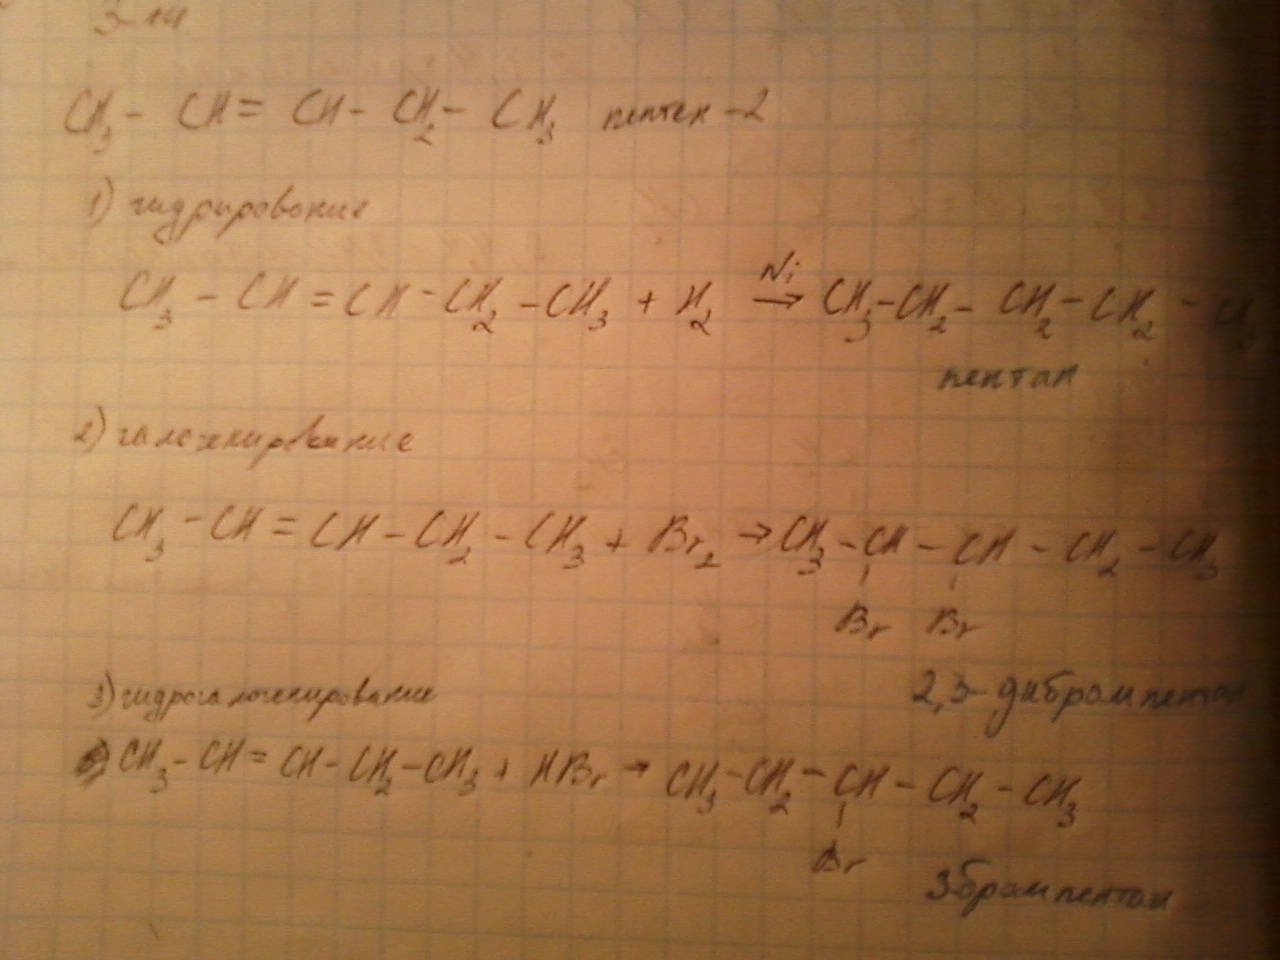 CH₃ – CH = CH – CH₂ – CH₃ пентен – 2
1) гидрирование
CH₃ – CH = CH – CH₂ – CH₃ + H₂ →(Ni) CH₃ – CH₂ – CH₂ – CH₂ – CH₃
пентан
2) галогенирование
CH₃ – CH = CH – CH₂ – CH₃ + Br₂ → CH₃ – CH – CH – CH₂ – CH₃
Br Br
2,3- дибромпентан
3) гидрогалогенирование
CH₃ – CH = CH – CH₂ – CH₃ + HBr → CH₃ – CH₂ – CH – CH₂ – CH₃
Br
3бромпентан